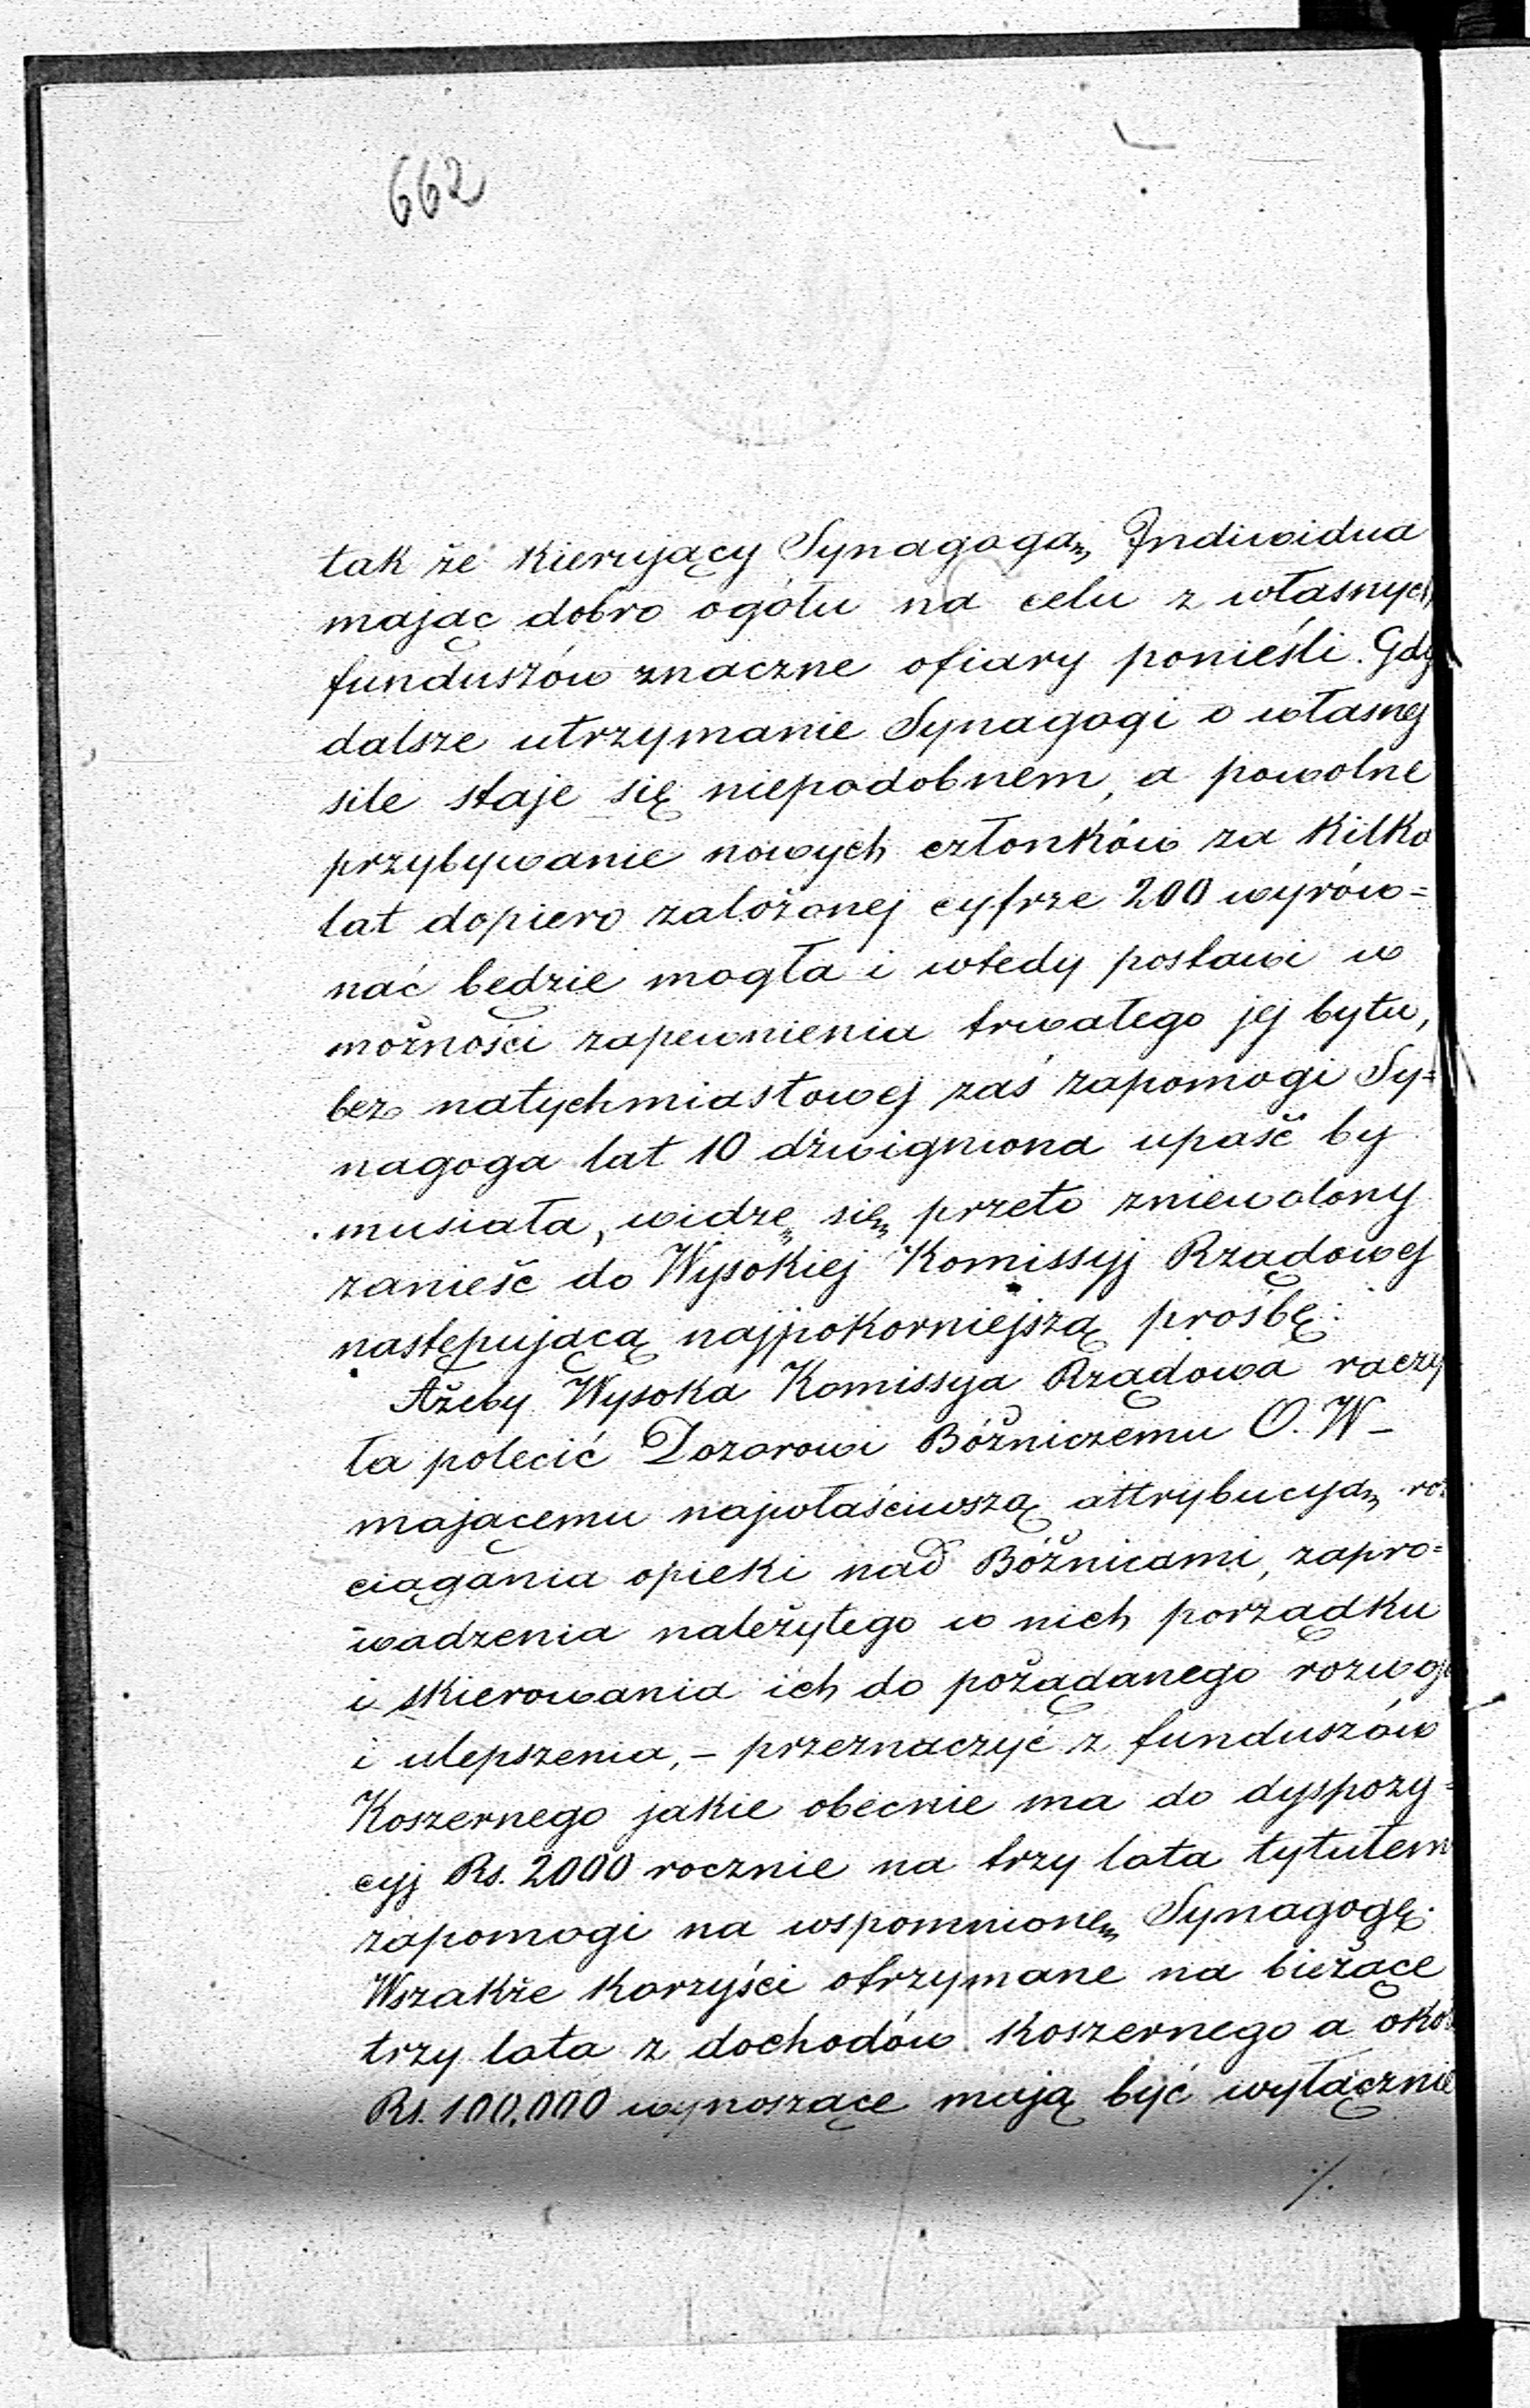 662
tak że kierujący Synagogą Indiwidua
mając dobro ogółu na celu z własnych
funduszów znaczne ofiary ponieśli. Gdy
dalsze utrzymanie Synagogi o własnej
sile staje się niepodobnem, a powolne
przybywanie nowych członków za kilka
lat dopiero założonej cyfrze 200 wyrów=
nać będzie mogła i wtedy postawi w
możności zapewnienia trwałego jej bytu,
bez natychmiastowej zaś zapomogi Sy=
nagoga lat 10 dźwigniona upaść by
musiała, widzę się przeto zniewolony
zanieść do Wysokiej Komissyj Rządowej
następującą najpokorniejszą prośbę:
Ażeby Wysoka Komissya Rządowa raczy
ła polecić Dozorowi Bóżniczemu O. W_
mającemu najwłaściwszą attrybucyą roz
ciągania opieki nad Bóżnicami, zapro=
wadzenia należytego w nich porządku
i skierowania ich do pożądanego rozwoju
i ulepszenia, – przeznaczyć z funduszów
Koszernego jakie obecnie ma do dyspozy=
cyj Rs. 2000 rocznie na trzy lata tytułem
zapomogi na wspomnionę Synagogę.
Wszakże korzyści otrzymane na bieżące
trzy lata z dochodów koszernego a oko
Rs. 100,000 wynoszące mają być wyłącznie
./.